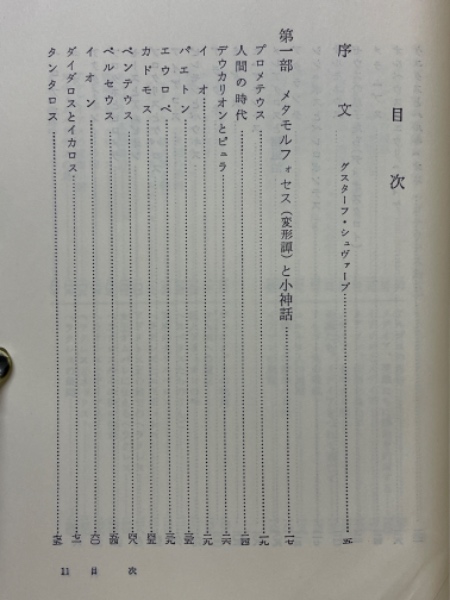 目次
序文 グスターフ・シュヴァープ……五
第一部 メタモルフォセス（変形譚）と小神話……一七
プロメテウス……一九
人間の時代……二四
デウカリオンとピュラ……二六
イオ……二九
パエトン……三五
エウロペ……三九
カドモス……四五
ペンテウス……四八
ペルセウス……五四
イオン……六〇
ダイダロスとイカロス……七一
タンタロス……七五
11 目次